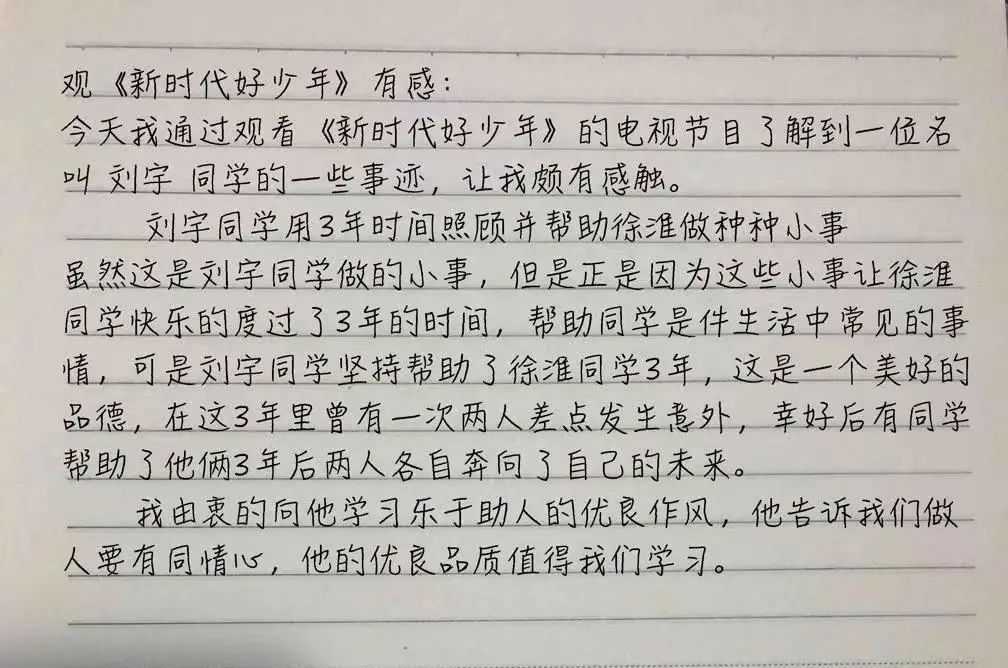 观《新时代好少年》有感：
今天我通过观看《新时代好少年》的电视节目了解到一位名
叫 刘宇 同学的一些事迹，让我颇有感触。
刘宇同学用3年时间照顾并帮助徐淮做种种小事
虽然这是刘宇同学做的小事，但是正是因为这些小事让徐淮
同学快乐的度过了3年的时间，帮助同学是件生活中常见的事
情，可是刘宇同学坚持帮助了徐淮同学3年，这是一个美好的
品德，在这3年里曾有一次两人差点发生意外，幸好后有同学
帮助了他俩3年后两人各自奔向了自己的未来。
我由衷的向他学习乐于助人的优良作风，他告诉我们做
人要有同情心，他的优良品质值得我们学习。